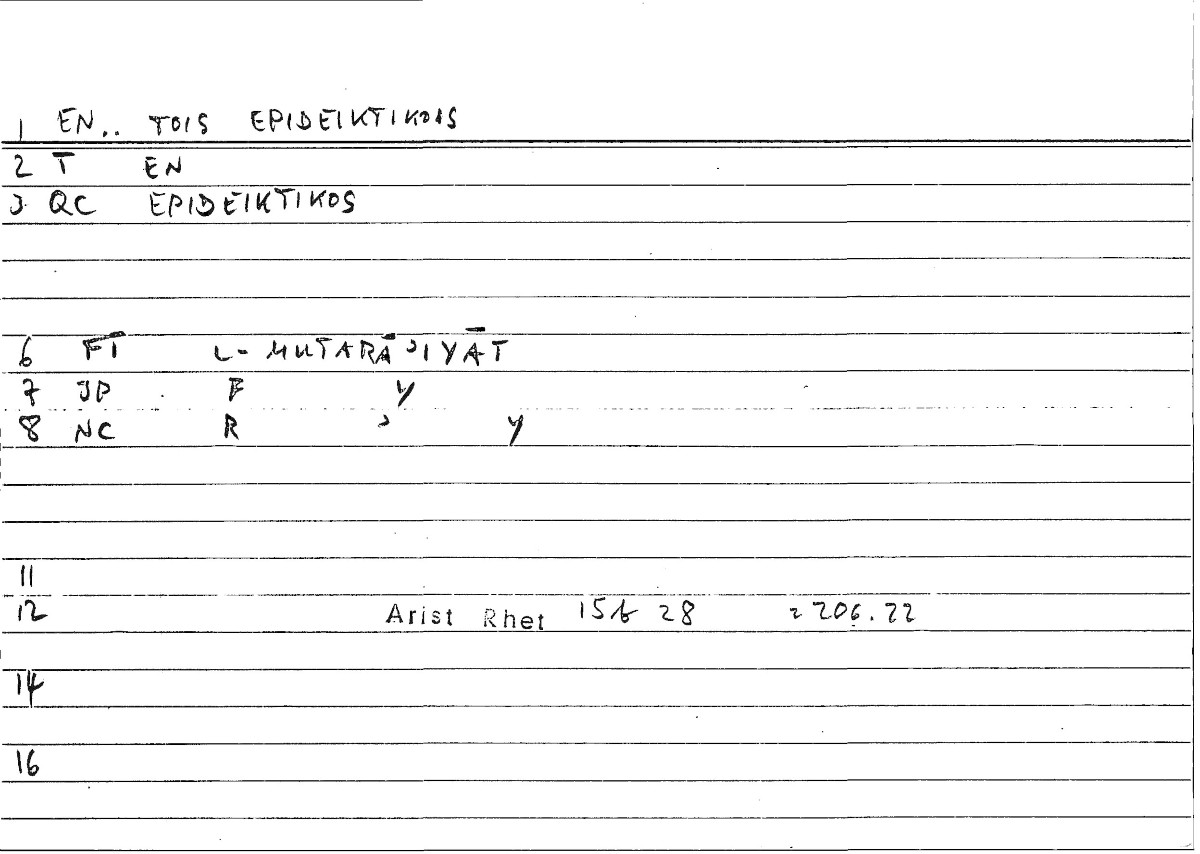 1 EN.. TOIS EPIDEIKTIKOIS
2 T EN
3 QC EPIDEIKTIKOS
6 FĪ L- MUTARĀʾIYĀT
7 JP F Y
8 NC R ʾ Y
11
12 Arist Rhet 15b 28 = 206.22
14
16